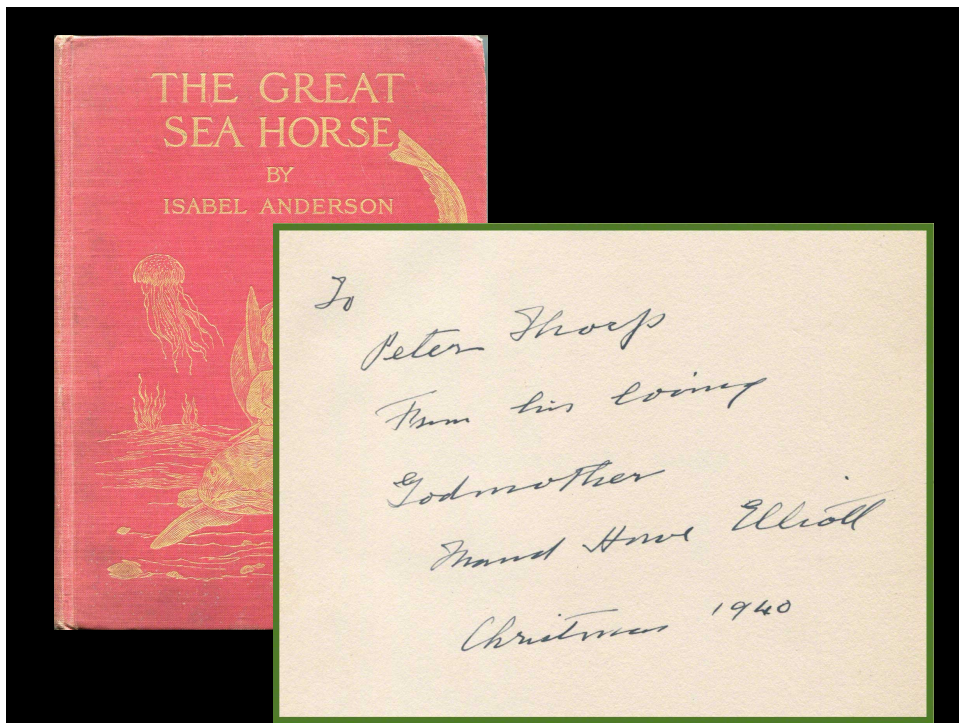 THE GREAT
SEA HORSE
BY
ISABEL ANDERSON
To
Peter Thorp
From his loving
Godmother
Maud Howe Elliott
Christmas 1940